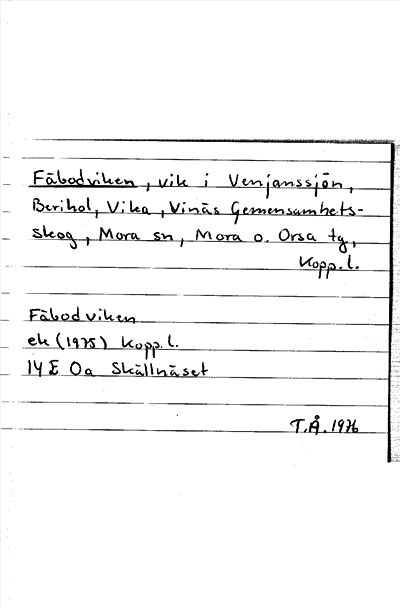 Fäbodviken, vik i Venjanssjön,
Berihol, Vika, Vinäs Gemensamhets-
skog, Mora sn, Mora o. Orsa tg,
Kopp.l.
Fäbodviken
ek (1975) Kopp.l.
14E 0a Skällnäset
T.Å. 1976